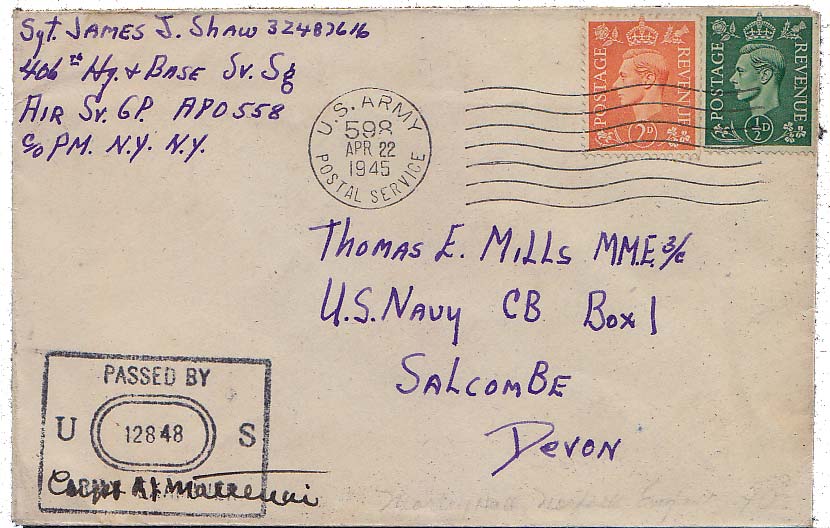 Sgt. James J. Shaw 32487616
406th Hq. + Base Sv. Sq
Air Sv. GP. APO 558
c/o PM. N.Y. N.Y.
U.S. ARMY
598
APR 22
1945
POSTAL SERVICE
POSTAGE REVENUE
2D
POSTAGE REVENUE
½D
Thomas E. Mills MM.E. 3/c
U.S. Navy CB Box 1
Salcombe
Devon
PASSED BY
U 12848 S